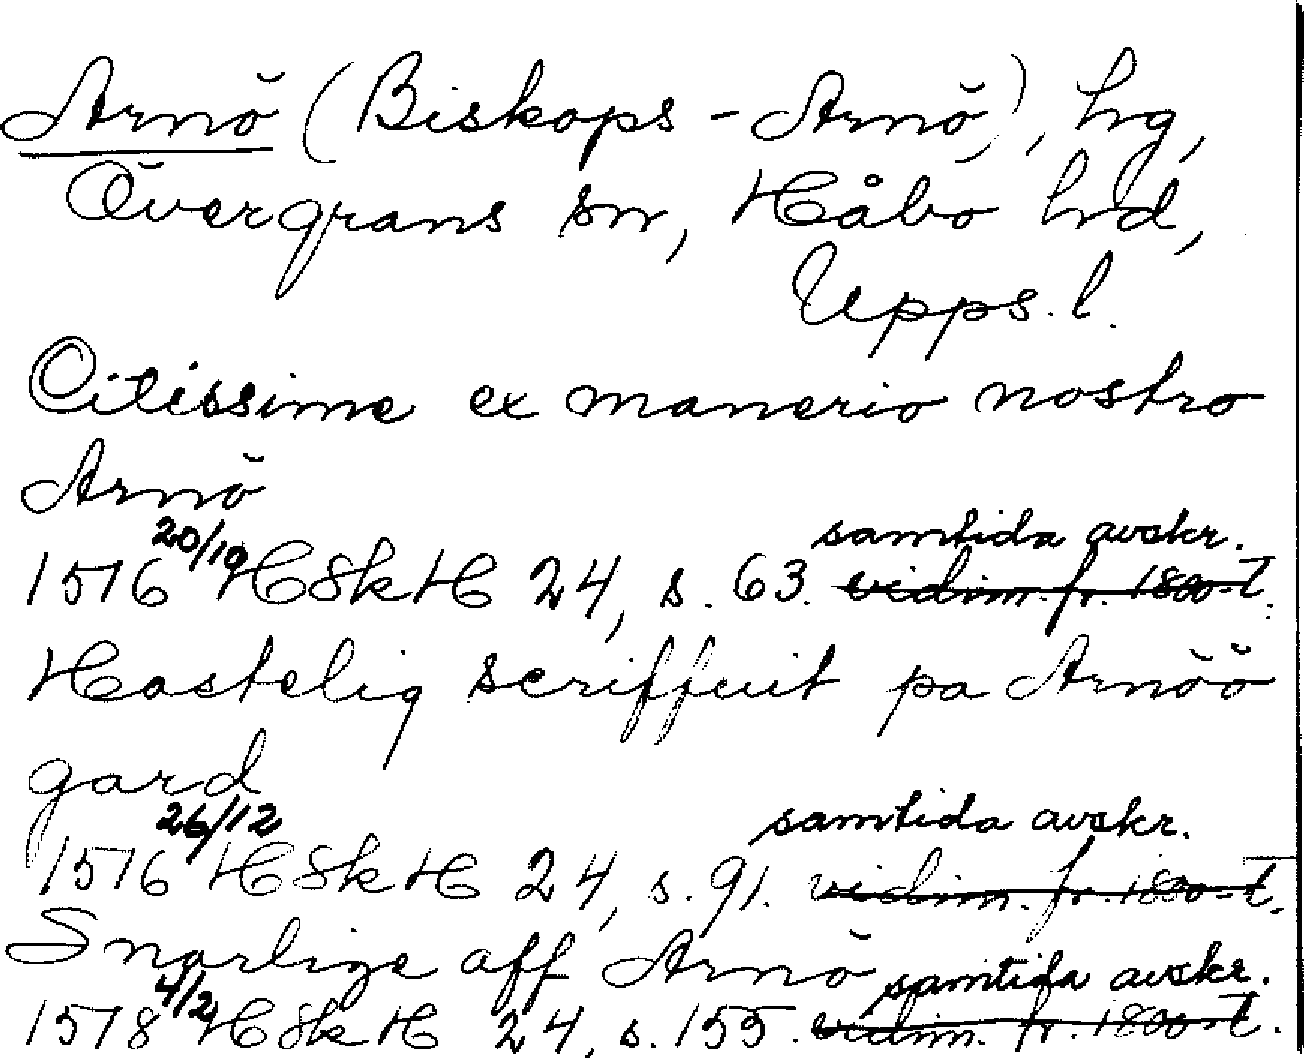 Arnö (Biskops-Arnö), hg,
Övergrans sn, Håbo hd,
Upps. l.
Citissime ex manerio nostro
Arnö
1516 20/10 HSkH 24, s. 63. samtida avskr. vidim. fr. 1800-t.
Hastelig scriffuit pa Arnöö
gard
1516 26/12 HSkH 24, s. 91. samtida avskr. vidim. fr. 1800-t.
Snarlige aff Arnö
1518 4/2 HSkH 24, s. 155. samtida avskr. vidim. fr. 1800-t.